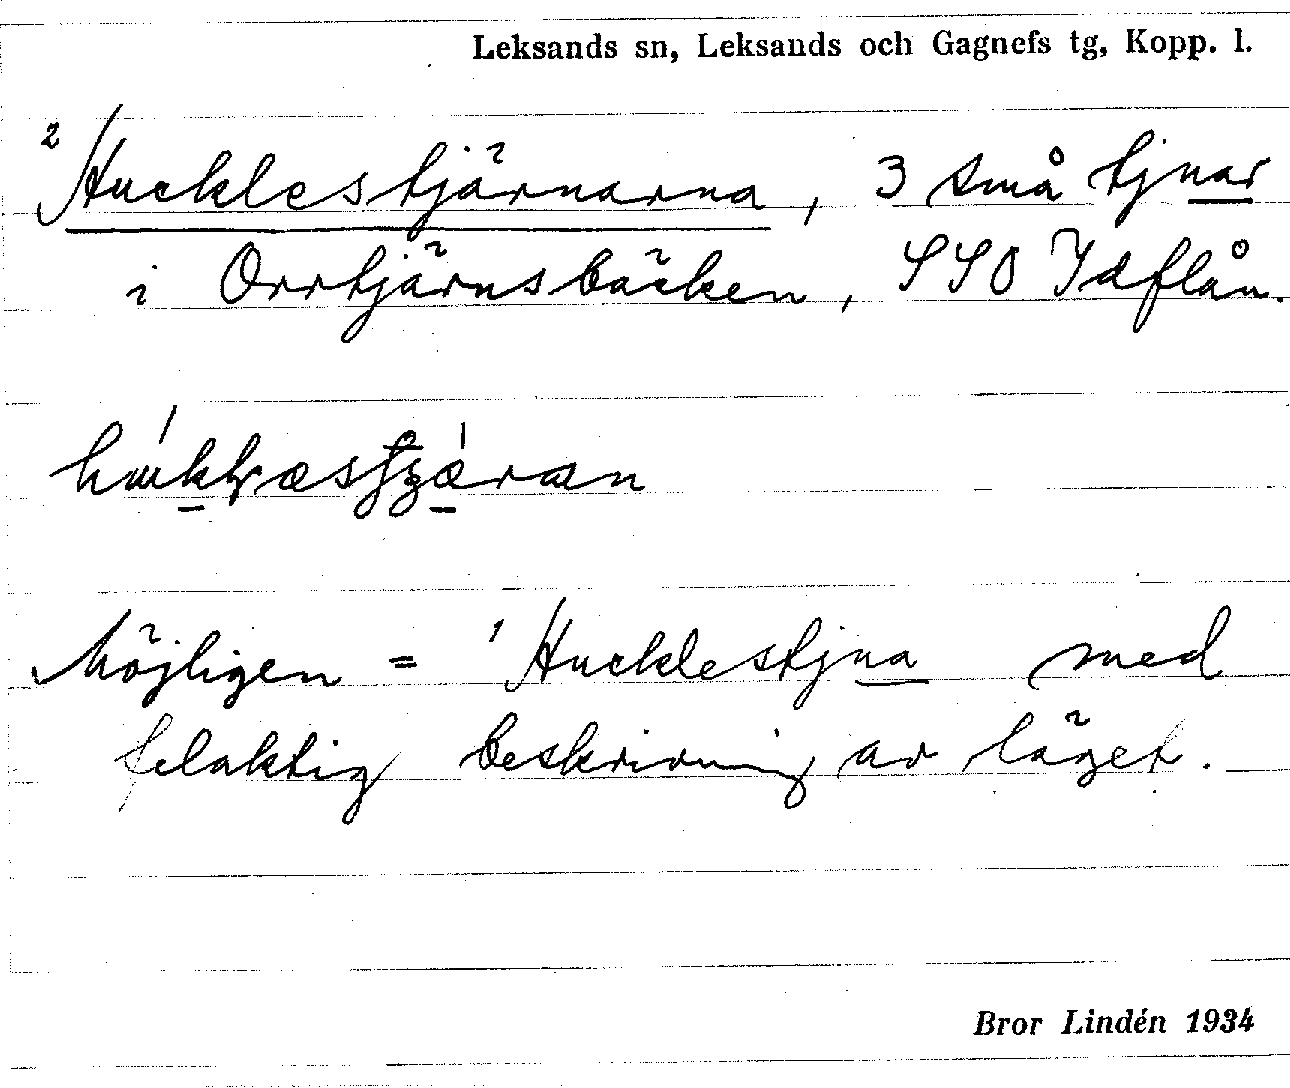 Leksands sn, Leksands och Gagnefs tg, Kopp. l.
² Hucklestjärnarna, 3 små tjnar
i Orrtjärnsbäcken, SSO Idflån.
Möjligen = ¹ Hucklestjna med
felaktig beskrivning av läget.
Bror Lindén 1934